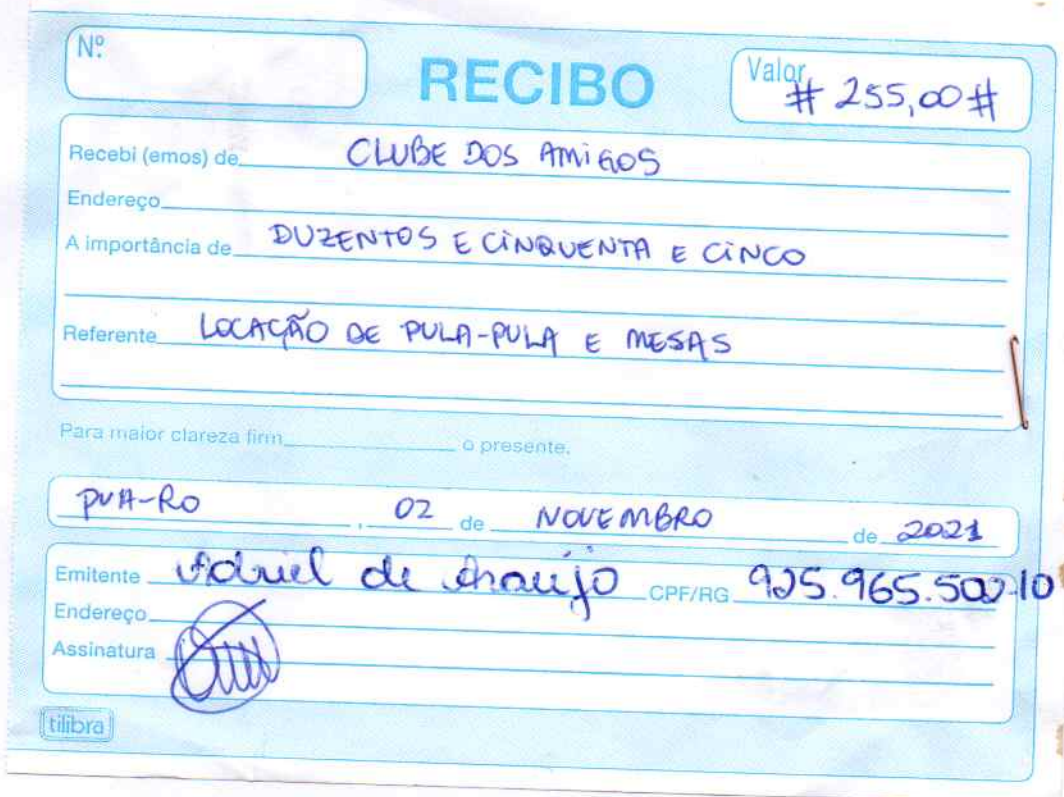 Nº
RECIBO
Valor # 255,00 #
Recebi (emos) de CLUBE DOS AMIGOS
Endereço
A importância de DUZENTOS E CINQUENTA E CINCO
Referente LOCAÇÃO DE PULA-PULA E MESAS
Para maior clareza firm o presente.
PVH-RO , 02 de NOVEMBRO de 2021
Emitente de Araujo CPF/RG 925.965.500-10
Endereço
Assinatura
tilibra